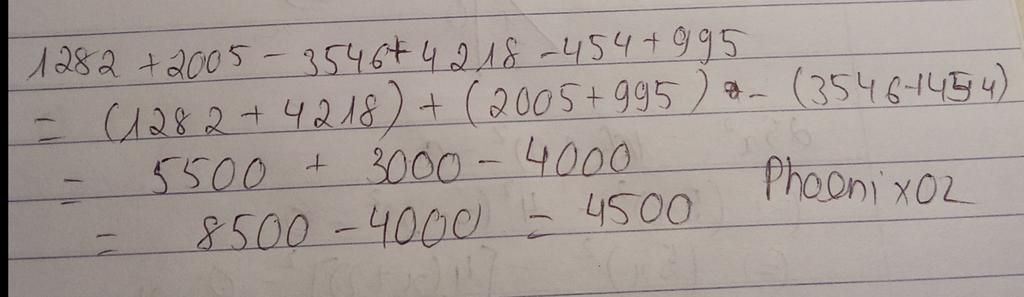 1282 + 2005 - 3546 + 4218 - 454 + 995
= (1282 + 4218) + (2005 + 995) - (3546 + 454)
= 5500 + 3000 - 4000
= 8500 - 4000 = 4500
Phoenix02